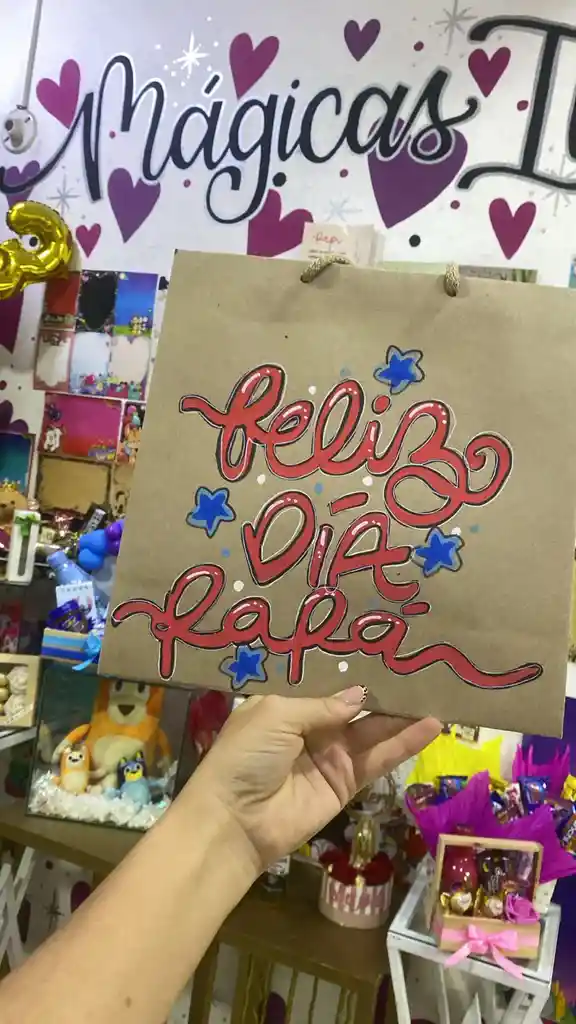 Mágicas
Feliz
DÍA
PaPá